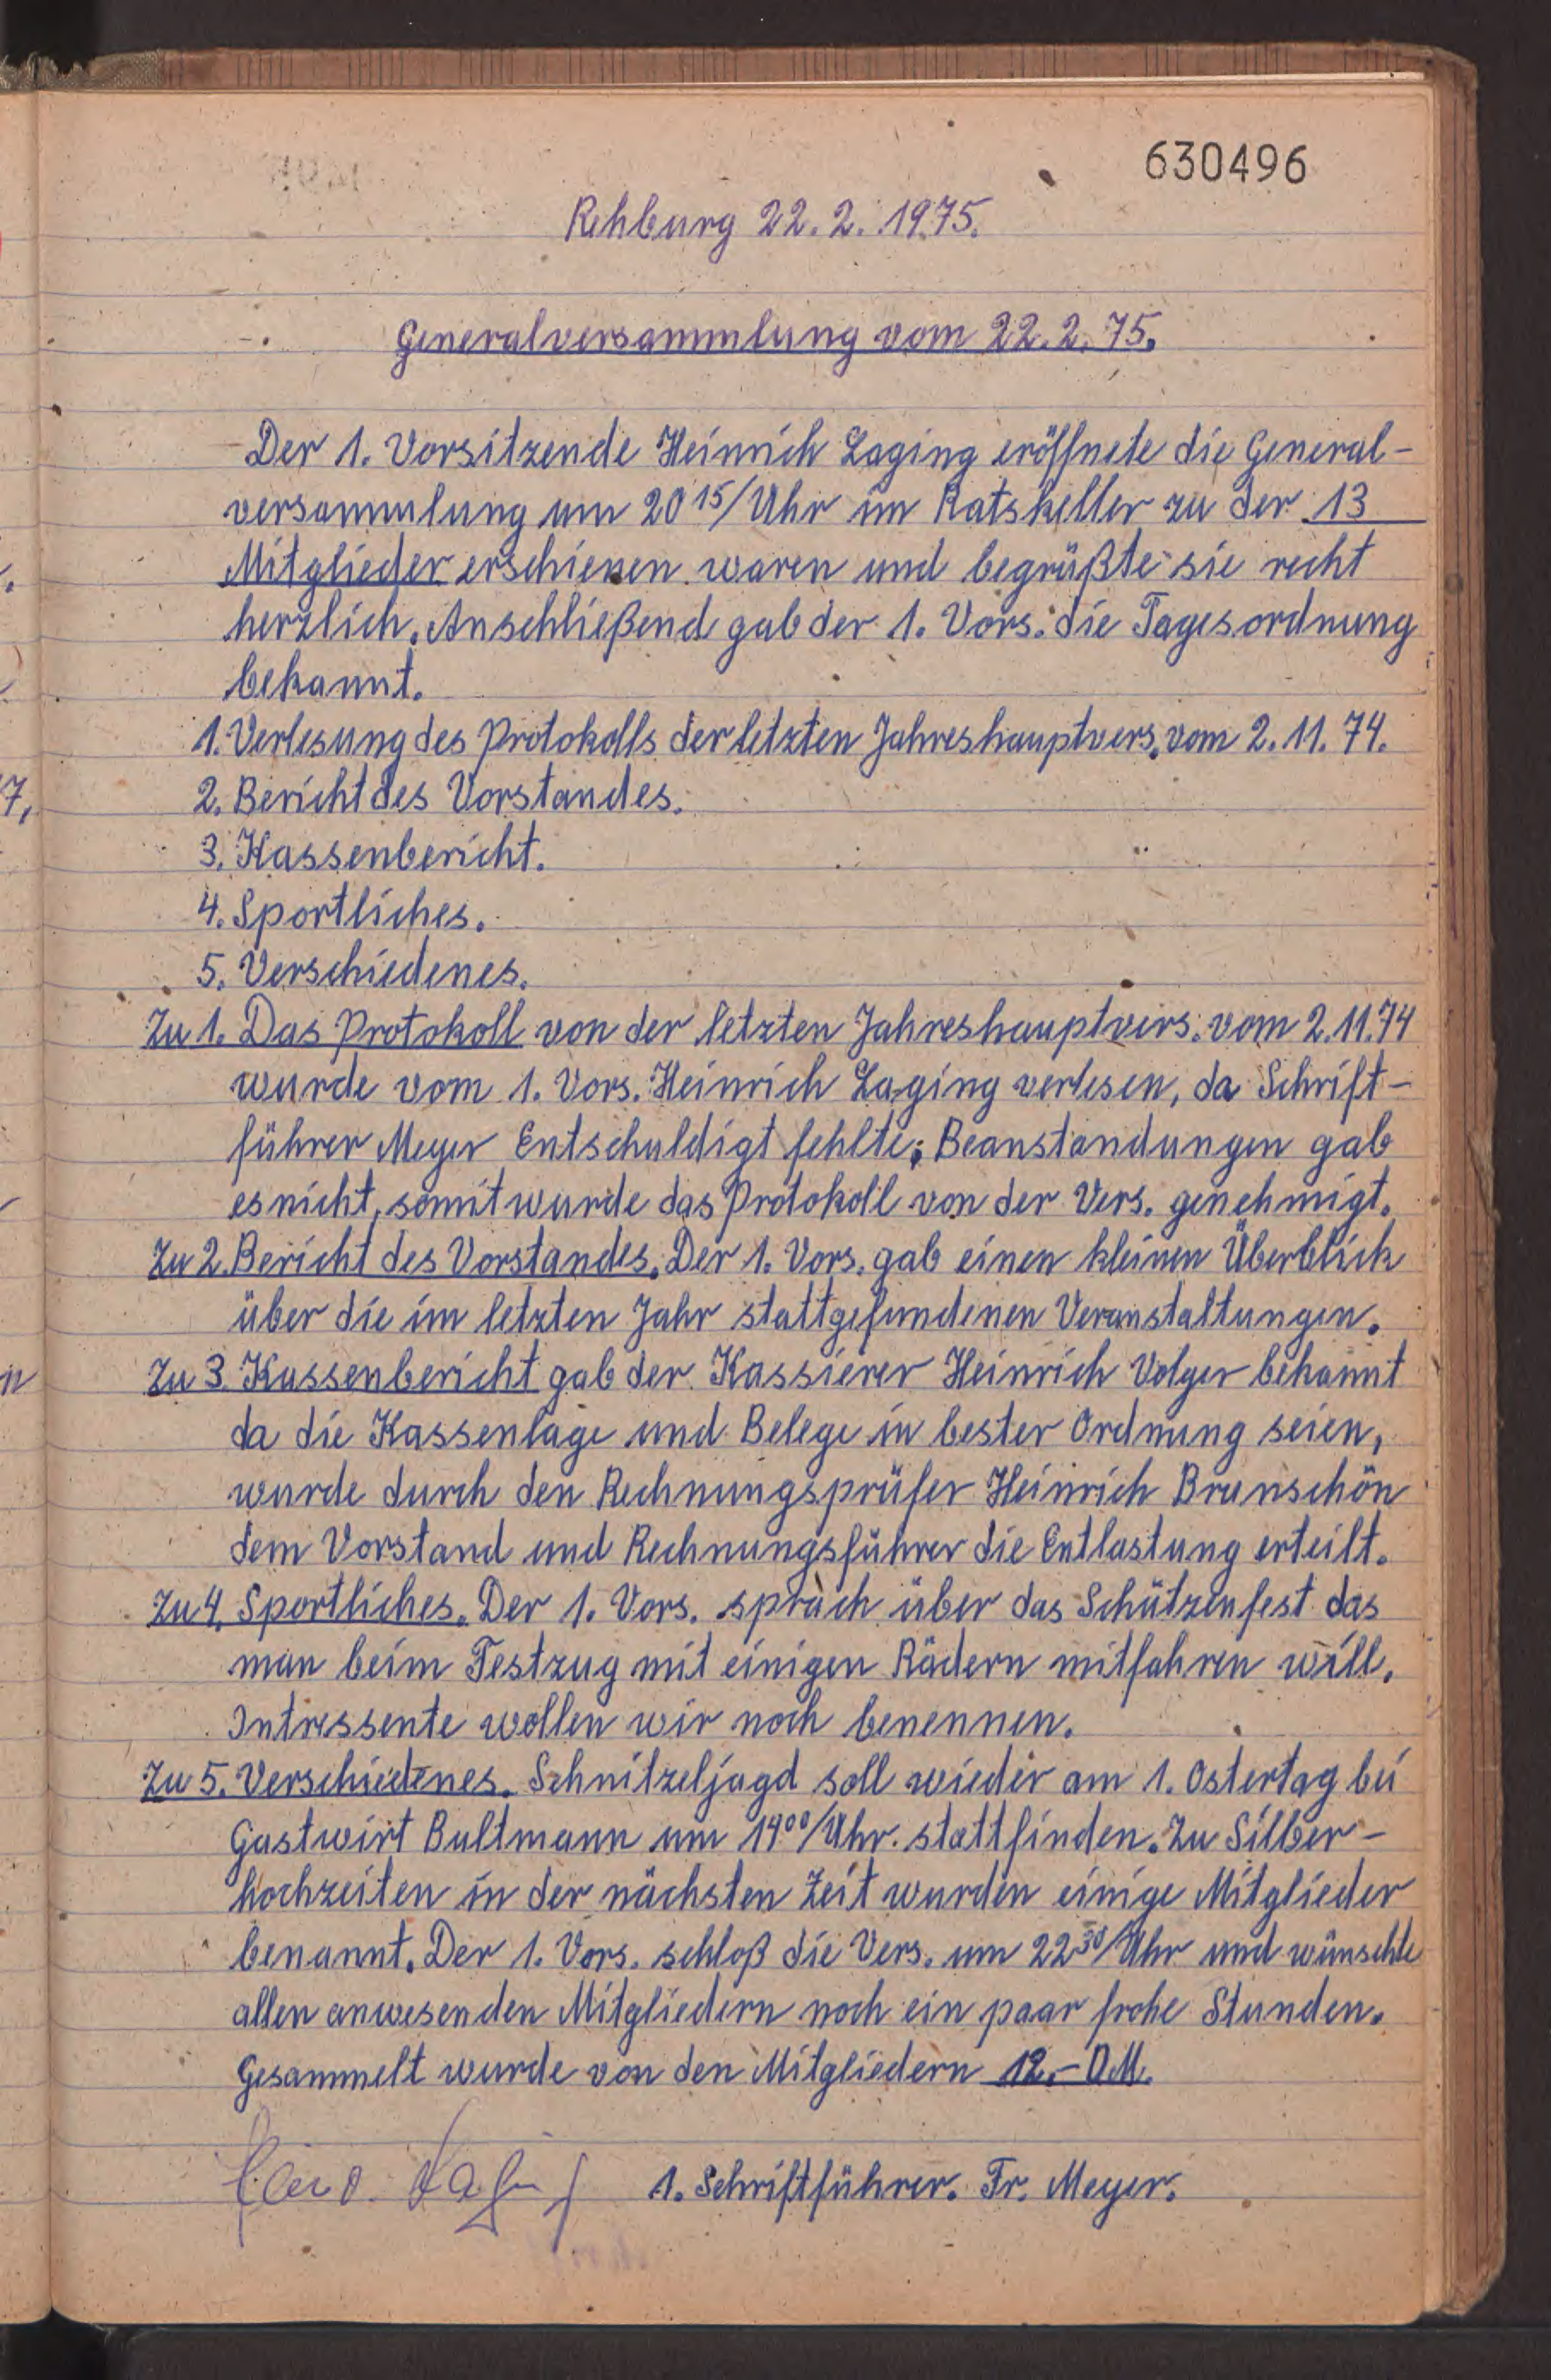 630496
Rehburg 22. 2. 1975.
Generalversammlung vom 22. 2. 75.
Der 1. Vorsitzende Heinrich Laging eröffnete die General-
versammlung um 20 15/Uhr im Ratskeller zu der 13
Mitglieder erschienen waren und begrüßte sie recht
herzlich. Anschließend gab der 1. Vors. die Tagesordnung
bekannt.
1. Verlesung des Protokolls der letzten Jahreshauptvers. vom 2. 11. 74.
2. Bericht des Vorstandes.
3. Kassenbericht.
4. Sportliches.
5. Verschiedenes.
Zu 1. Das Protokoll von der letzten Jahreshauptvers. vom 2.11.74
wurde vom 1. Vors. Heinrich Laging verlesen, da Schrift-
führer Meyer Entschuldigt fehlte; Beanstandungen gab
es nicht, somit wurde das Protokoll von der Vers. genehmigt.
Zu 2. Bericht des Vorstandes. Der 1. Vors. gab einen kleinen Überblick
über die im letzten Jahr stattgefundenen Veranstaltungen.
Zu 3. Kassenbericht gab der Kassierer Heinrich Volger bekannt
da die Kassenlage und Belege in bester Ordnung seien,
wurde durch den Rechnungsprüfer Heinrich Brunschön
dem Vorstand und Rechnungsführer die Entlastung erteilt.
Zu 4. Sportliches. Der 1. Vors. sprach über das Schützenfest das
man beim Festzug mit einigen Rädern mitfahren will.
Intressente wollen wir noch benennen.
Zu 5. Verschiedenes. Schnitzeljagd soll wieder am 1. Ostertag bei
Gastwirt Bultmann um 14 00/Uhr. stattfinden. Zu Silber-
hochzeiten in der nächsten Zeit wurden einige Mitglieder
benannt. Der 1. Vors. schloß die Vers. um 22 30/Uhr und wünschte
allen anwesenden Mitgliedern noch ein paar frohe Stunden.
Gesammelt wurde von den Mitgliedern 12,- D.M.
1. Schriftführer. Fr. Meyer.